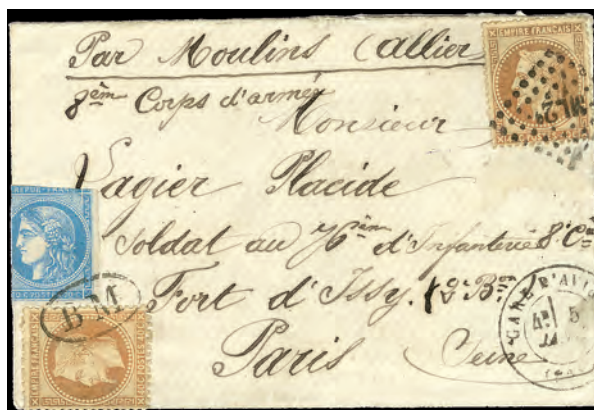 Par Moulins (allier
8èm Corps d'armée
Monsieur
Lagier Placide
Soldat au 76èm d'Infanterie 8e Cie
Fort d'Issy. (2e Bon
Paris Seine
EMPIRE FRANÇAIS
REPUB FRANC
20 C POSTES 20 C
BM
EMPIRE FRANÇAIS
GARE D'AVI
5